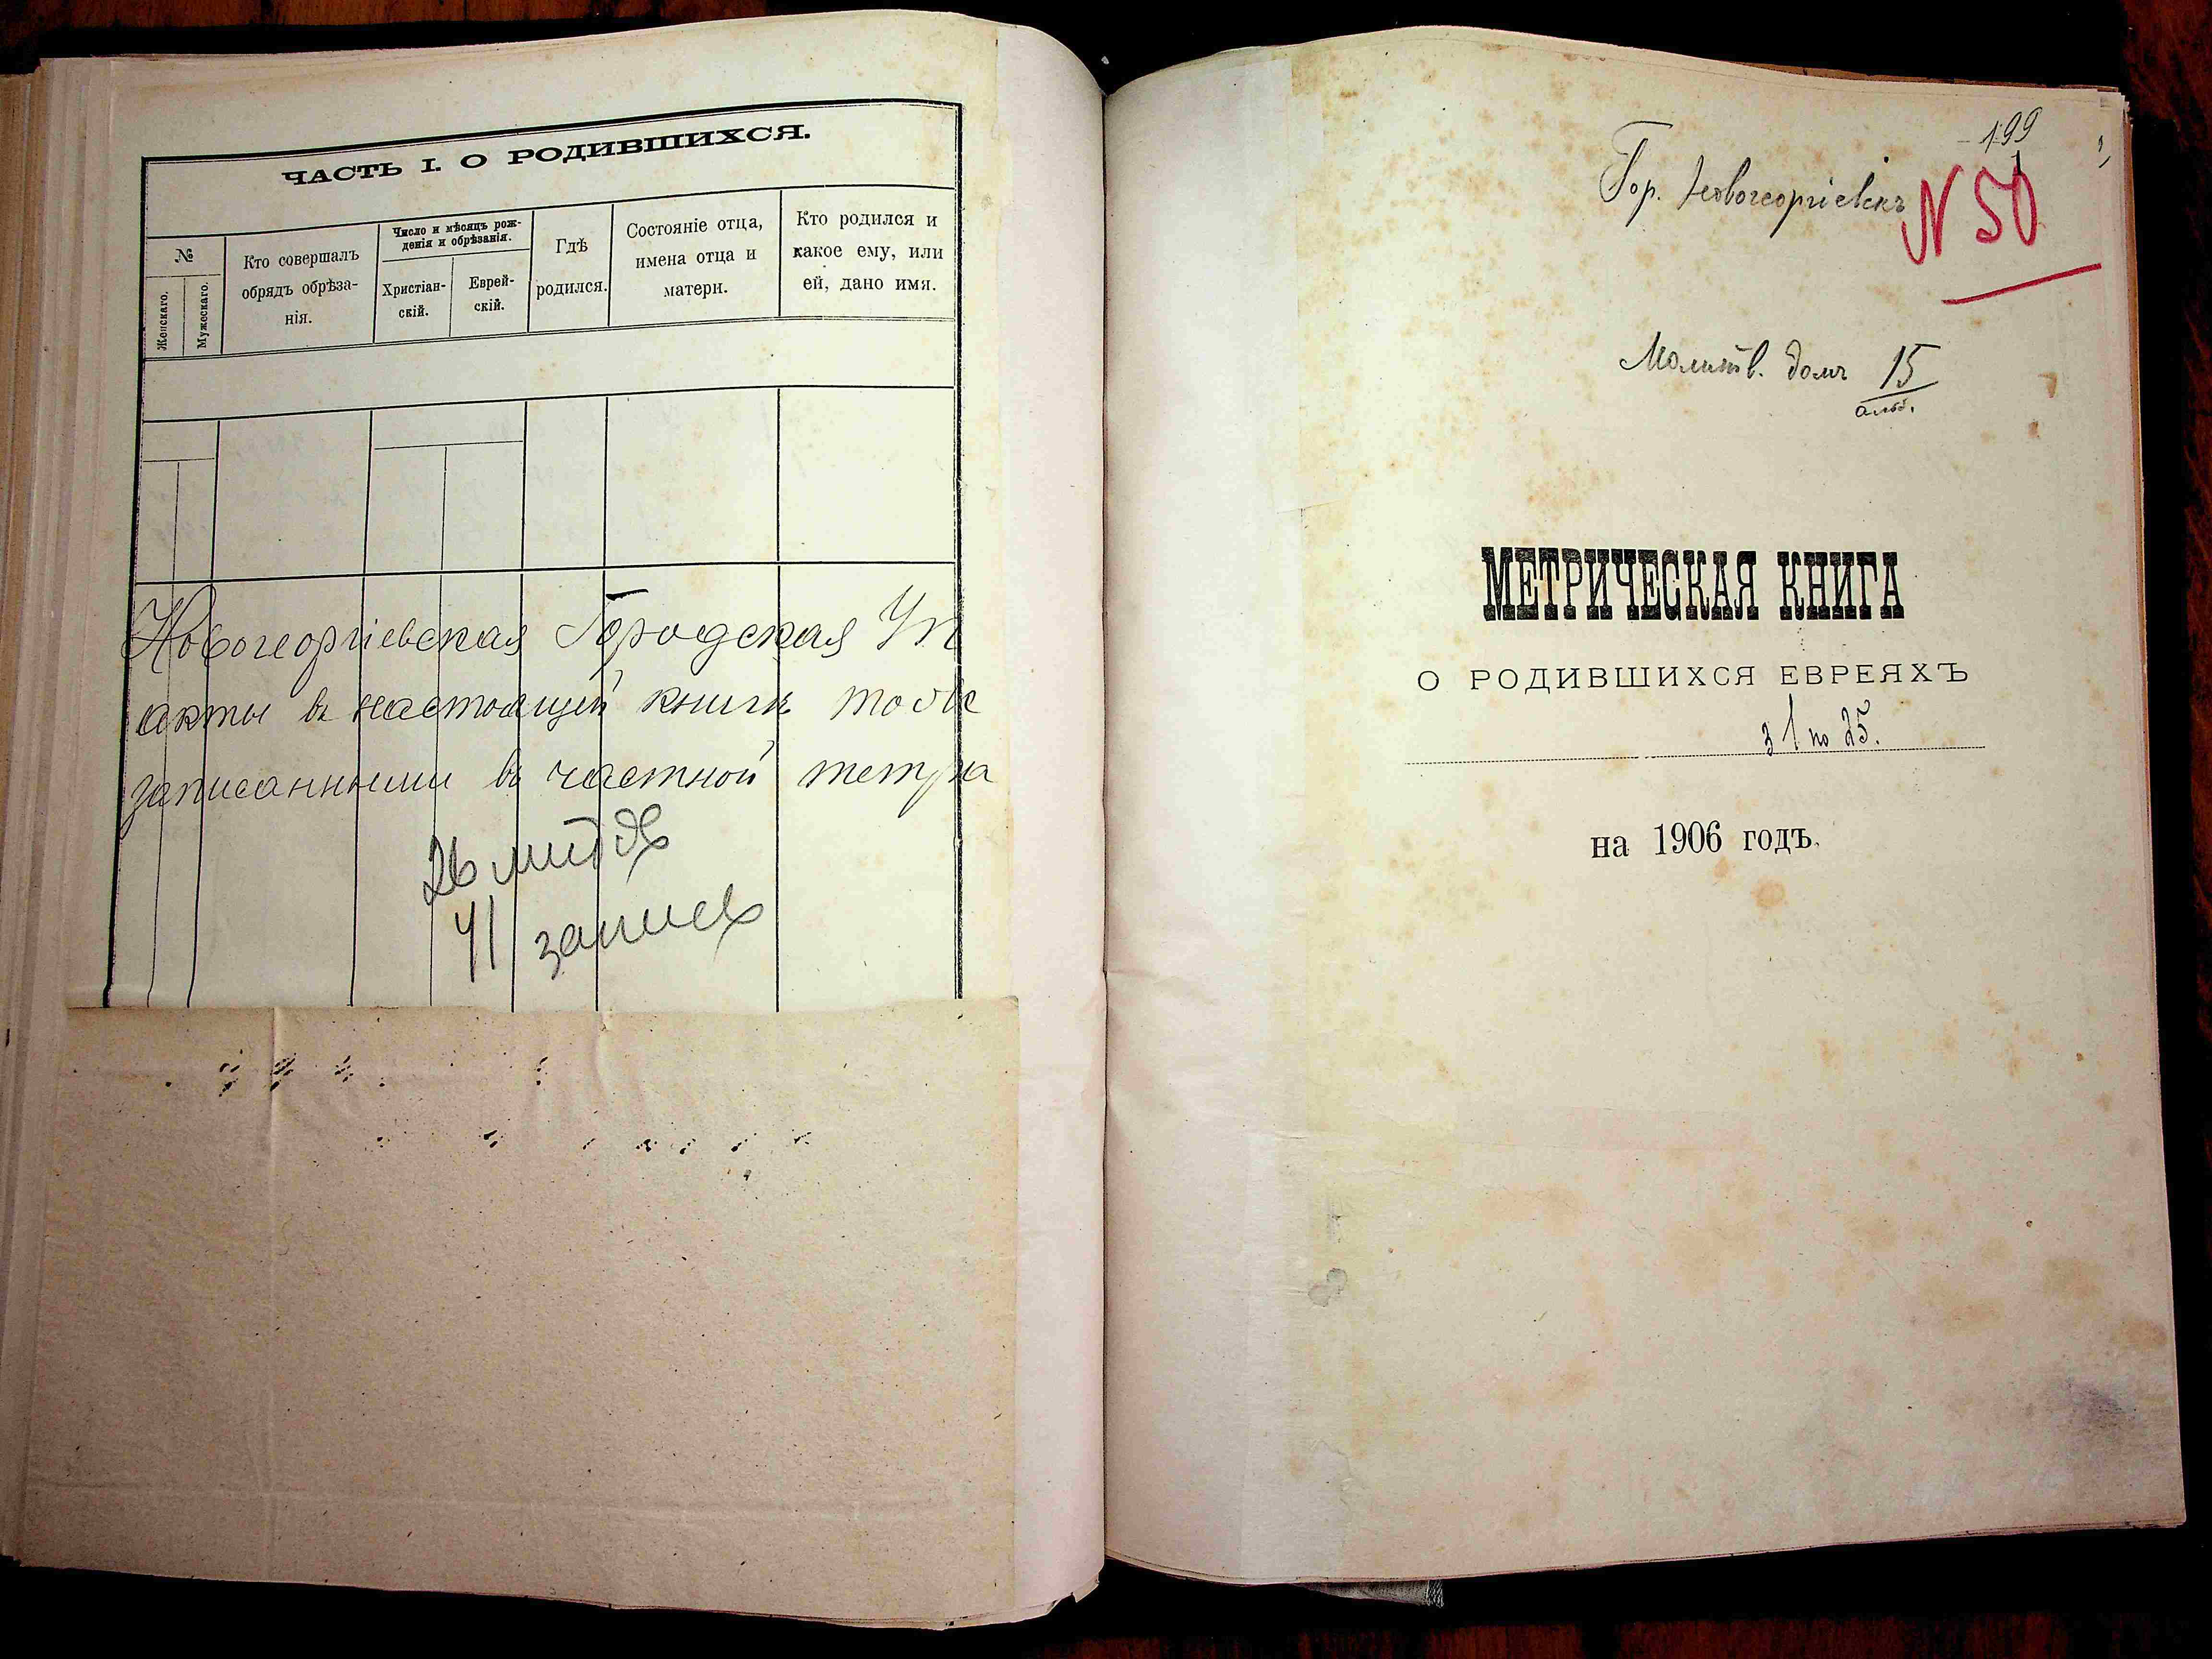 ЧАСТЬ I. О РОДИВШИХСЯ.
№
Женскаго.
Мужескаго.
Кто совершалъ
обрядъ обрѣза-
нія.
Число и мѣсяцъ рож-
денія и обрѣзанія.
Христіан-
скій.
Еврей-
скій.
Гдѣ
родился.
Состояніе отца,
имена отца и
матери.
Кто родился и
какое ему, или
ей, дано имя.
Новогеоргіевская Городская Уп
акты въ настоящей книгѣ
записанными въ частной тетра
41 запись
199
Гор. Новогеоргіевскъ
N 50
Молитв. домъ 15
МЕТРИЧЕСКАЯ КНИГА
О РОДИВШИХСЯ ЕВРЕЯХЪ
з 1 по 25.
на 1906 годъ.